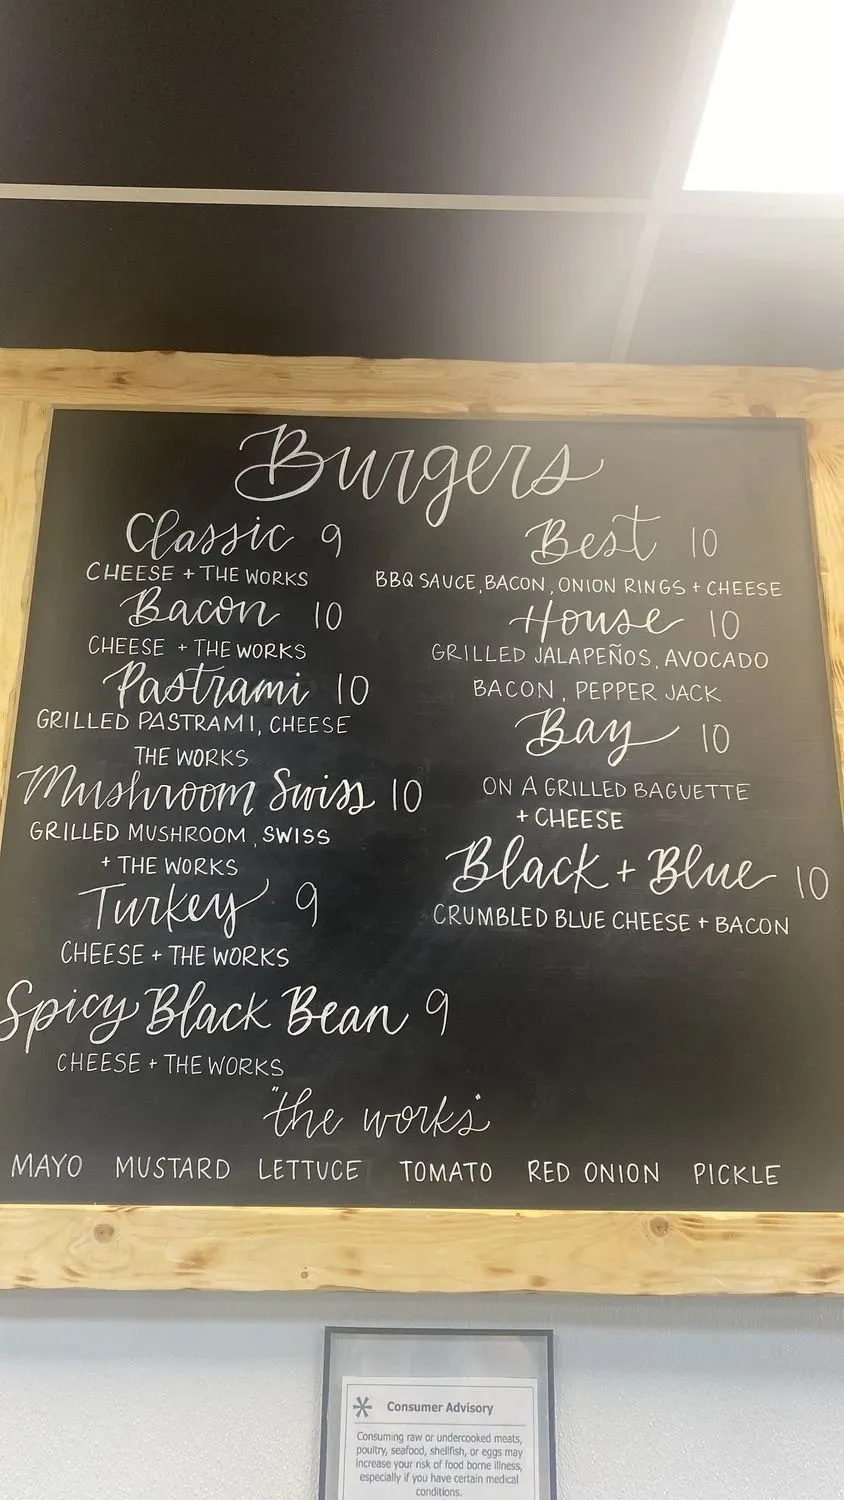 Burgers
Classic 9
CHEESE + THE WORKS
Bacon 10
CHEESE + THE WORKS
Pastrami 10
GRILLED PASTRAMI, CHEESE
THE WORKS
Mushroom Swiss 10
GRILLED MUSHROOM, SWISS
+ THE WORKS
Turkey 9
CHEESE + THE WORKS
Spicy Black Bean 9
CHEESE + THE WORKS
Best 10
BBQ SAUCE, BACON, ONION RINGS + CHEESE
House 10
GRILLED JALAPEÑOS, AVOCADO
BACON, PEPPER JACK
Bay 10
ON A GRILLED BAGUETTE
+ CHEESE
Black + Blue 10
CRUMBLED BLUE CHEESE + BACON
"the works"
MAYO MUSTARD LETTUCE TOMATO RED ONION PICKLE
* Consumer Advisory
Consuming raw or undercooked meats,
poultry, seafood, shellfish, or eggs may
increase your risk of food borne illness,
especially if you have certain medical
conditions.